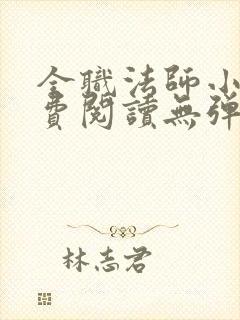 全職法師小
費閱讀無彈
林志君